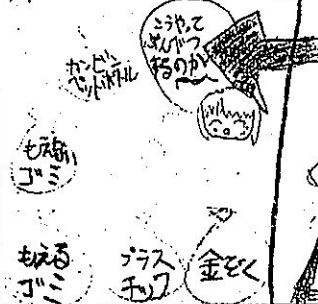 こうやって
ぶんべつ
するのか
カン・ビン
ペットボトル
もえない
ゴミ
もえる
ゴミ
プラス
チック
金ぞく